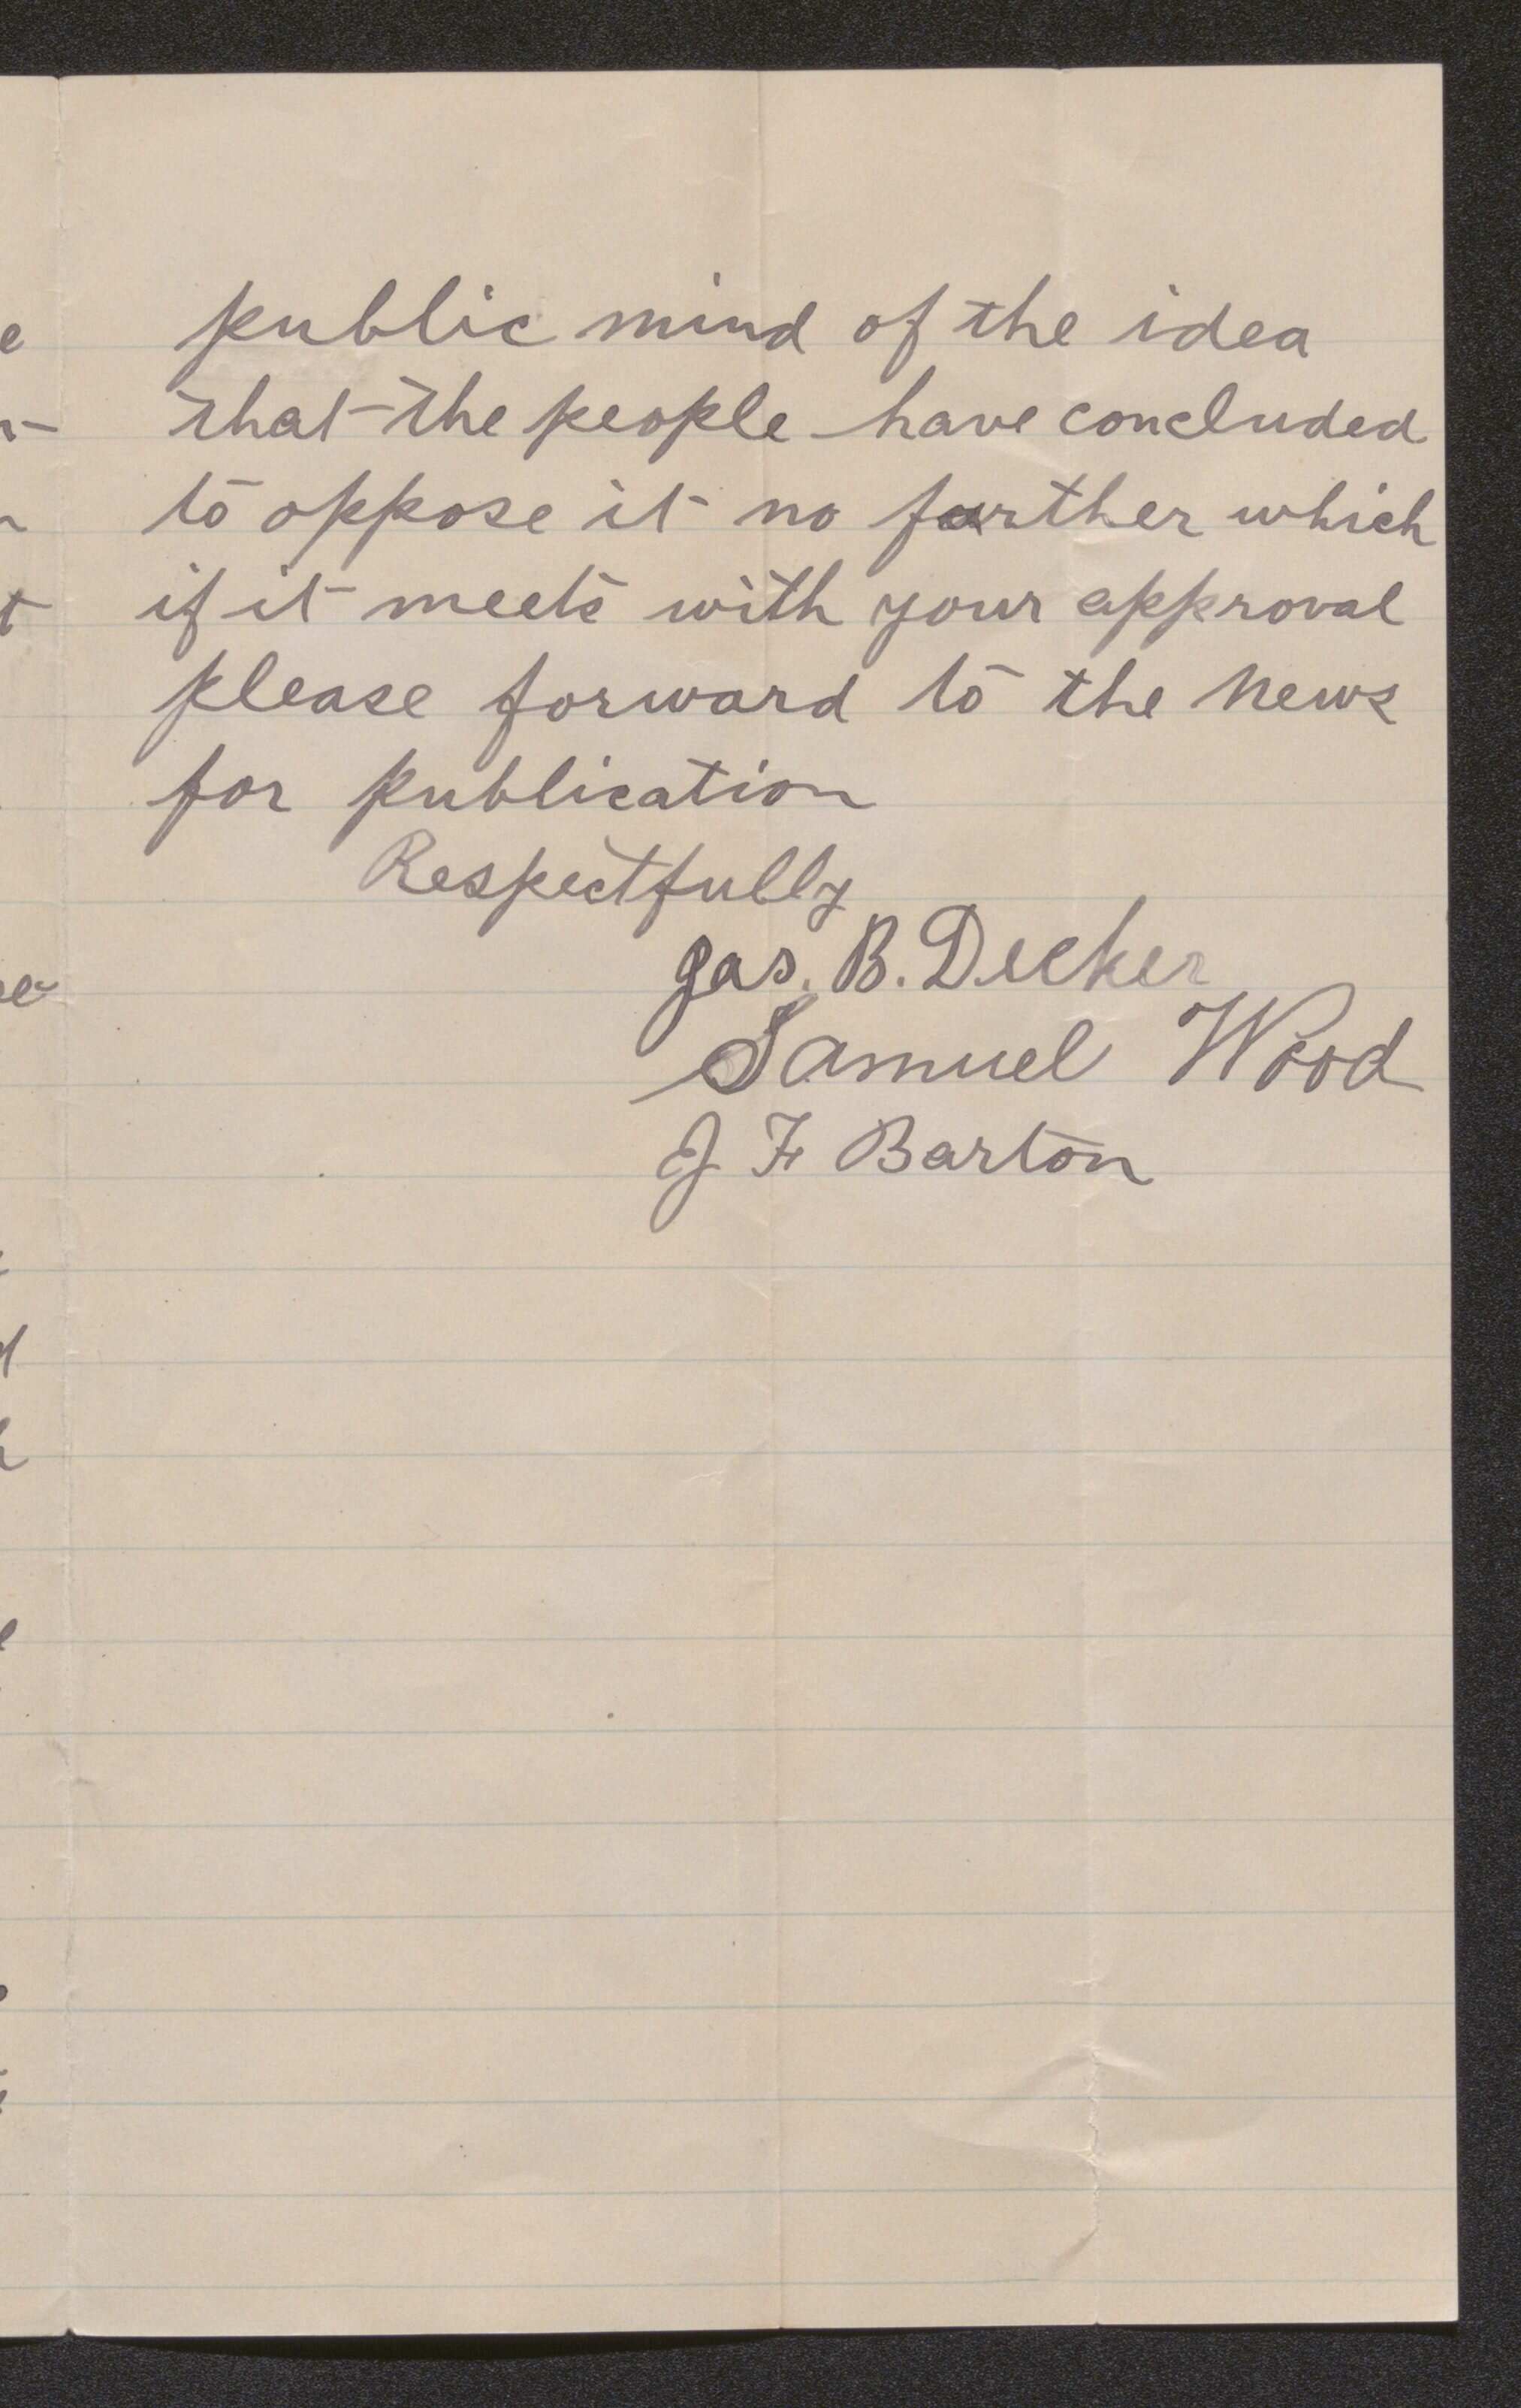 public mind of the idea
that the people have concluded
to oppose it no further which
if it meets with your approval
please forward to the News
for publication
Respectfully
Jas. B. Decker
Samuel Wood
J F Barton